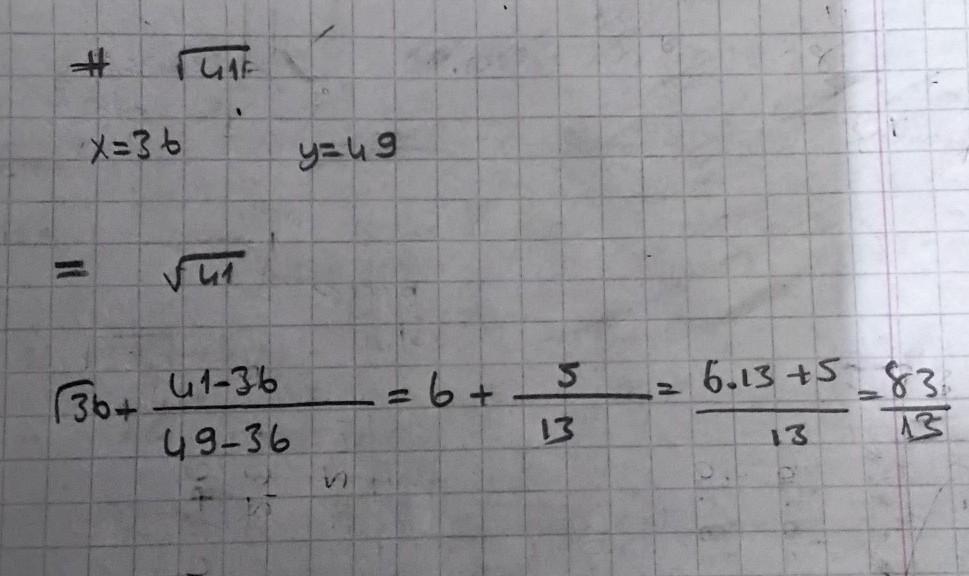 # √41
x=36 y=49
= √41
√36 + 41-36/49-36 = 6 + 5/13 = 6.13+5/13 = 83/13